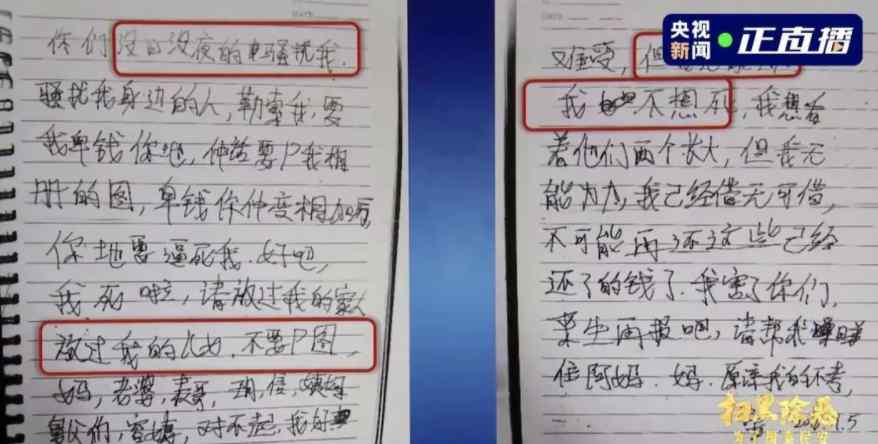 央视新闻 正直播
你们没日没夜的骚扰我.
骚扰我身边的人,勒索我,要
我卑钱你地,仲话要P我相
册的图,卑钱你仲变相加
你地要逼死我.好吧,
我死啦,请放过我的家人
放过我的儿女.不要P图,
妈,老婆,表哥,
们,对不起,我好
难受,但
我不想死,我想看
着他们两个长大,但我无
能为力,我已经借无可借,
不可能再还这些已经
还了的钱了.我害了你们,
来生再报吧,请帮我
住阿妈.妈.原谅我的不孝,
扫黑除恶